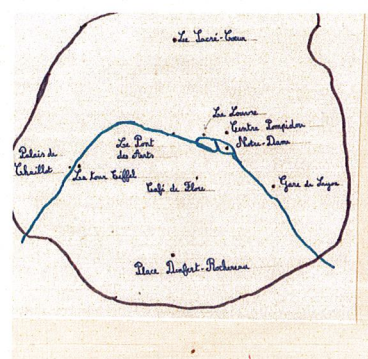 Le Sacré-Cœur
Le Louvre
Centre Pompidou
Notre-Dame
Le Pont
des Arts
Palais de
Chaillot
La tour Eiffel
Café de Flore
Gare de Lyon
Place Denfert-Rochereau